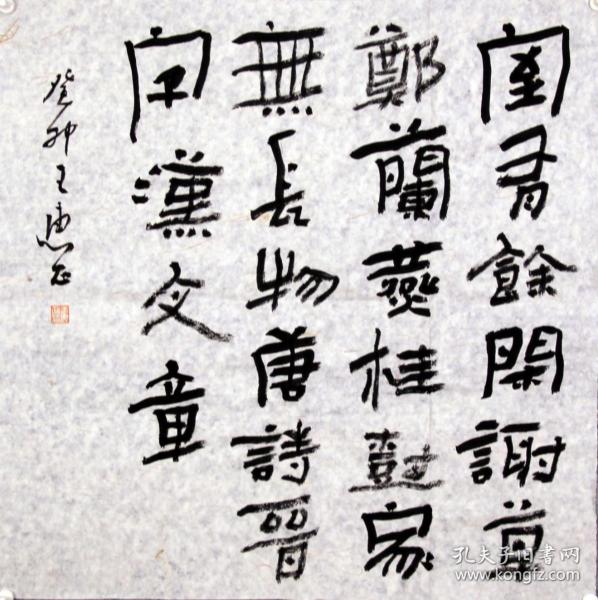 室有餘閑謝草
鄭蘭燕桂樹家
無長物唐詩晉
字漢文章
癸卯王惠
孔夫子旧书网
www.kongfz.com